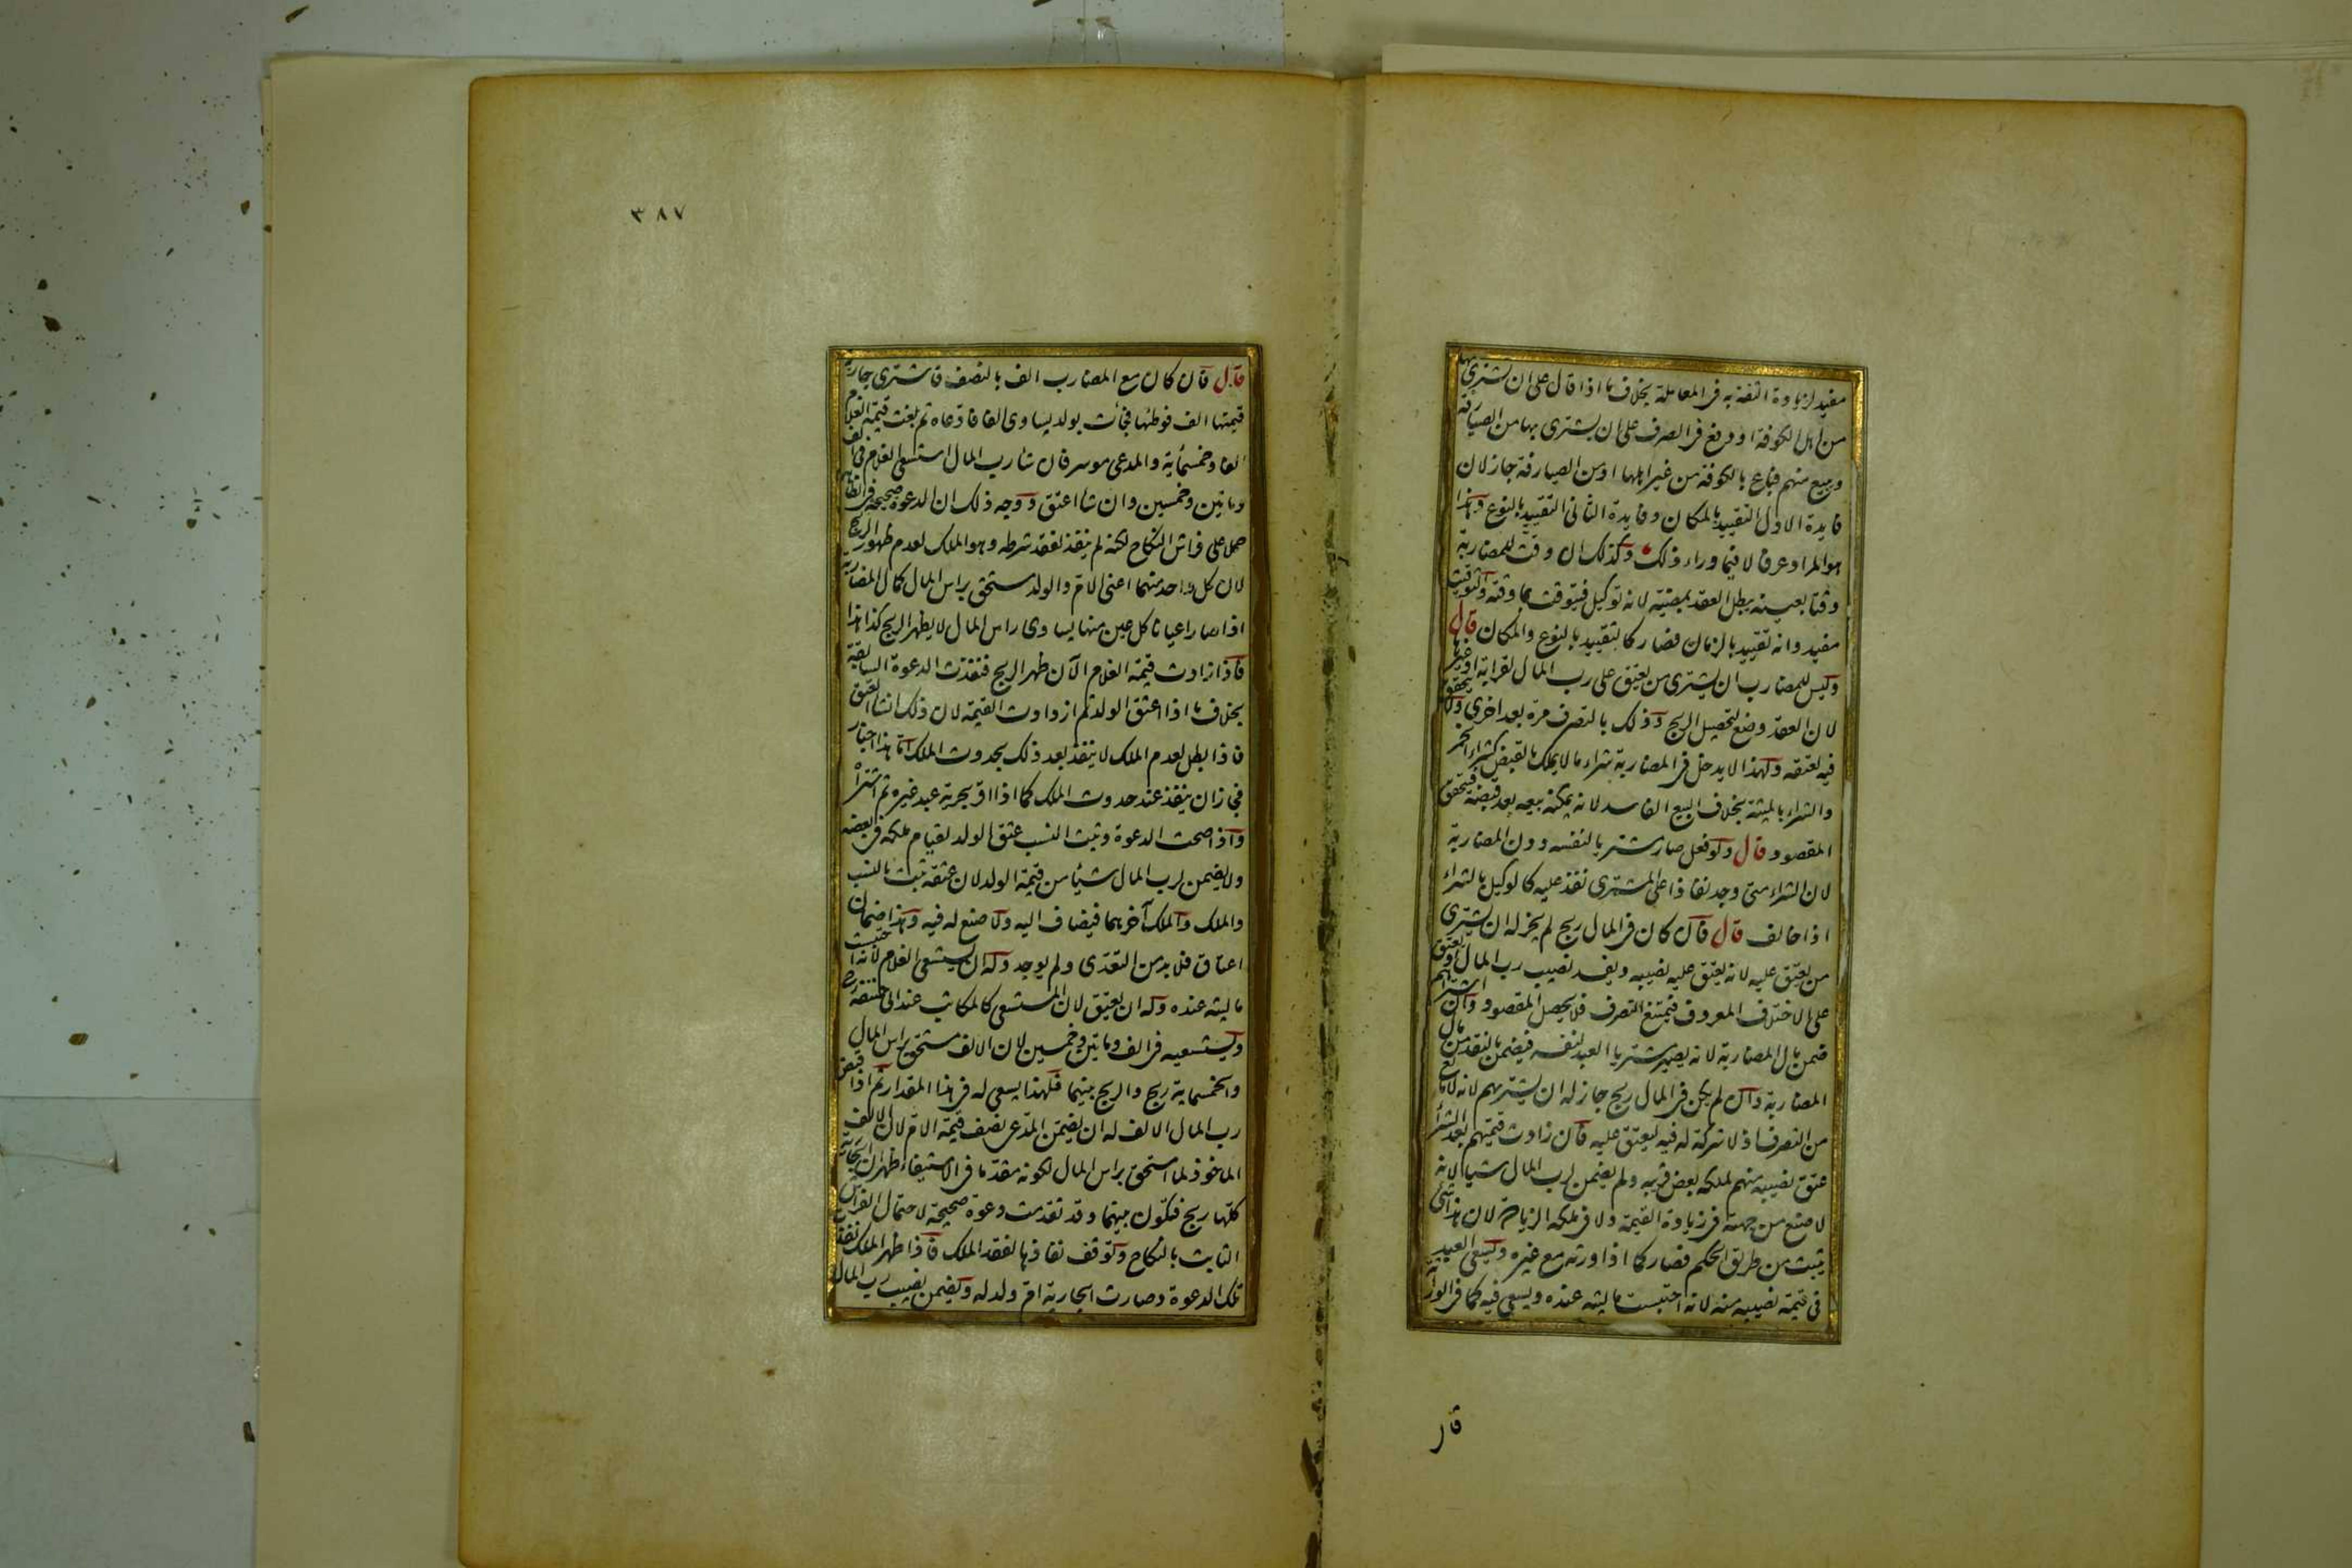 مفيد لزيادة الثقة به فى المعاملة بخلاف ما اذا قال على ان تشترى بها
من اهل الكوفة او دفع فى الصرف على ان يشترى بها من الصيارفة
ويبيع منهم فباع بالكوفة من غير اهلها او من الصيارفة جاز لان
فايدة الاول التقييد بالمكان وفايدة الثانى التقييد بالنوع وهذا
هو المراد عرفا لا فيما وراء ذلك وكذلك ان وقت للمضاربة
وقتا بعينه يبطل العقد بمضيه لانه توكيل فيتوقت بما وقته والتوقيت
مفيد وانه تقييد بالزمان فصار كالتقييد بالنوع والمكان قال
وليس للمضارب ان يشترى من يعتق على رب المال لقرابة او غيرها
لان العقد وضع لتحصيل الربح وذلك بالتصرف مرة بعد اخرى ولا يتحقق
فيه لعتقه ولهذا لا يدخل فى المضاربة شراء ما لا يملك بالقبض كشراء الخمر
والشراء بالميتة بخلاف البيع الفاسد لانه يمكنه بيعه بعد قبضه فيتحقق
المقصود قال ولو فعل صار مشتريا لنفسه دون المضاربة
لان الشراء متى وجد نفاذا على المشترى نفذ عليه كالوكيل بالشراء
اذا خالف قال فان كان فى المال ربح لم يجز له ان يشترى
من يعتق عليه لانه يعتق عليه نصيبه ويفسد نصيب رب المال او يعتق
على الاختلاف المعروف فيمتنع التصرف فلا يحصل المقصود وان اشتراهم
ضمن مال المضاربة لانه يصير مشتريا العبد لنفسه فيضمن بالنقد من مال
المضاربة وان لم يكن فى المال ربح جاز له ان يشتريهم لانه لا مانع
من التصرف اذ لا شركة له فيه ليعتق عليه فان زادت قيمتهم بعد الشراء
عتق نصيبه منهم لملكه بعض قريبه ولم يضمن لرب المال شيا لانه
لا صنع من جهته فى زيادة القيمة ولا فى ملكه الزيادة لان هذا شئ
يثبت من طريق الحكم فصار كما اذا ورثه مع غيره ويسعى العبد
فى قيمة نصيبه منه لانه احتبست ماليته عنده ويسعى فيه كما فى الوراثة
٣٨٧
قال فان كان مع المضارب الف بالنصف فاشترى جارية
قيمتها الف فوطئها فجأت بولد يساوى الفا فادعاه ثم بلغت قيمة الغلام
الفا وخمسماية والمدعى موسر فان شا رب المال استسعى الغلام فى الف
ومايتين وخمسين وان شا اعتق ووجه ذلك ان الدعوة صحيحة فى الظاهر
حملا على فراش النكاح لكنه لم ينفذ لفقد شرطه وهو الملك لعدم ظهور الربح
لان كل واحد منهما اعنى الام والولد مستحق براس المال كمال المضاربة
اذا صار اعيانا كل عين منها يساوى راس المال لا يظهر الربح كذا هذا
فاذا زادت قيمة الغلام الآن ظهر الربح فنفذت الدعوة السابقة
بخلاف ما اذا اعتق الولد ثم ازدادت القيمة لان ذلك انشا العتق
فاذا بطل لعدم الملك لا ينفذ بعد ذلك بحدوث الملك اما هذا اخبار
فجاز ان ينفذ عند حدوث الملك كما اذا اقر بحرية عبد غيره ثم اشتراه
واذا صحت الدعوة وثبت النسب عتق الولد لقيام ملكه فى بعضه
ولا يضمن لرب المال شيأ من قيمة الولد لان عتقه ثبت بالنسب
والملك والملك آخرهما فيضاف اليه ولا صنع له فيه وهذا ضمان
اعتاق فلا بد من التعدى ولم يوجد وله ان يستسعى الغلام لانه احتبست
ماليته عنده وله ان يعتق لان المستسعى كالمكاتب عند ابى حنيفة رح
ويستسعيه فى الف ومايتين وخمسين لان الالف مستحق براس المال
والخمسماية ربح والربح بينهما فلهذا يسعى له فى هذا المقدار ثم اذا قبض
رب المال الالف له ان يضمن المدعى نصف قيمة الام لان الالف
الماخوذ لما استحق براس المال لكونه مقدما فى الاستيفاء ظهر ان الجارية
كلها ربح فتكون بينهما وقد تقدمت دعوة صحيحة لاحتمال الفراش
الثابت بالنكاح وتوقف نفاذها لفقد الملك فاذا ظهر الملك نفذت
تلك الدعوة وصارت الجارية ام ولد له ويضمن نصيب رب المال